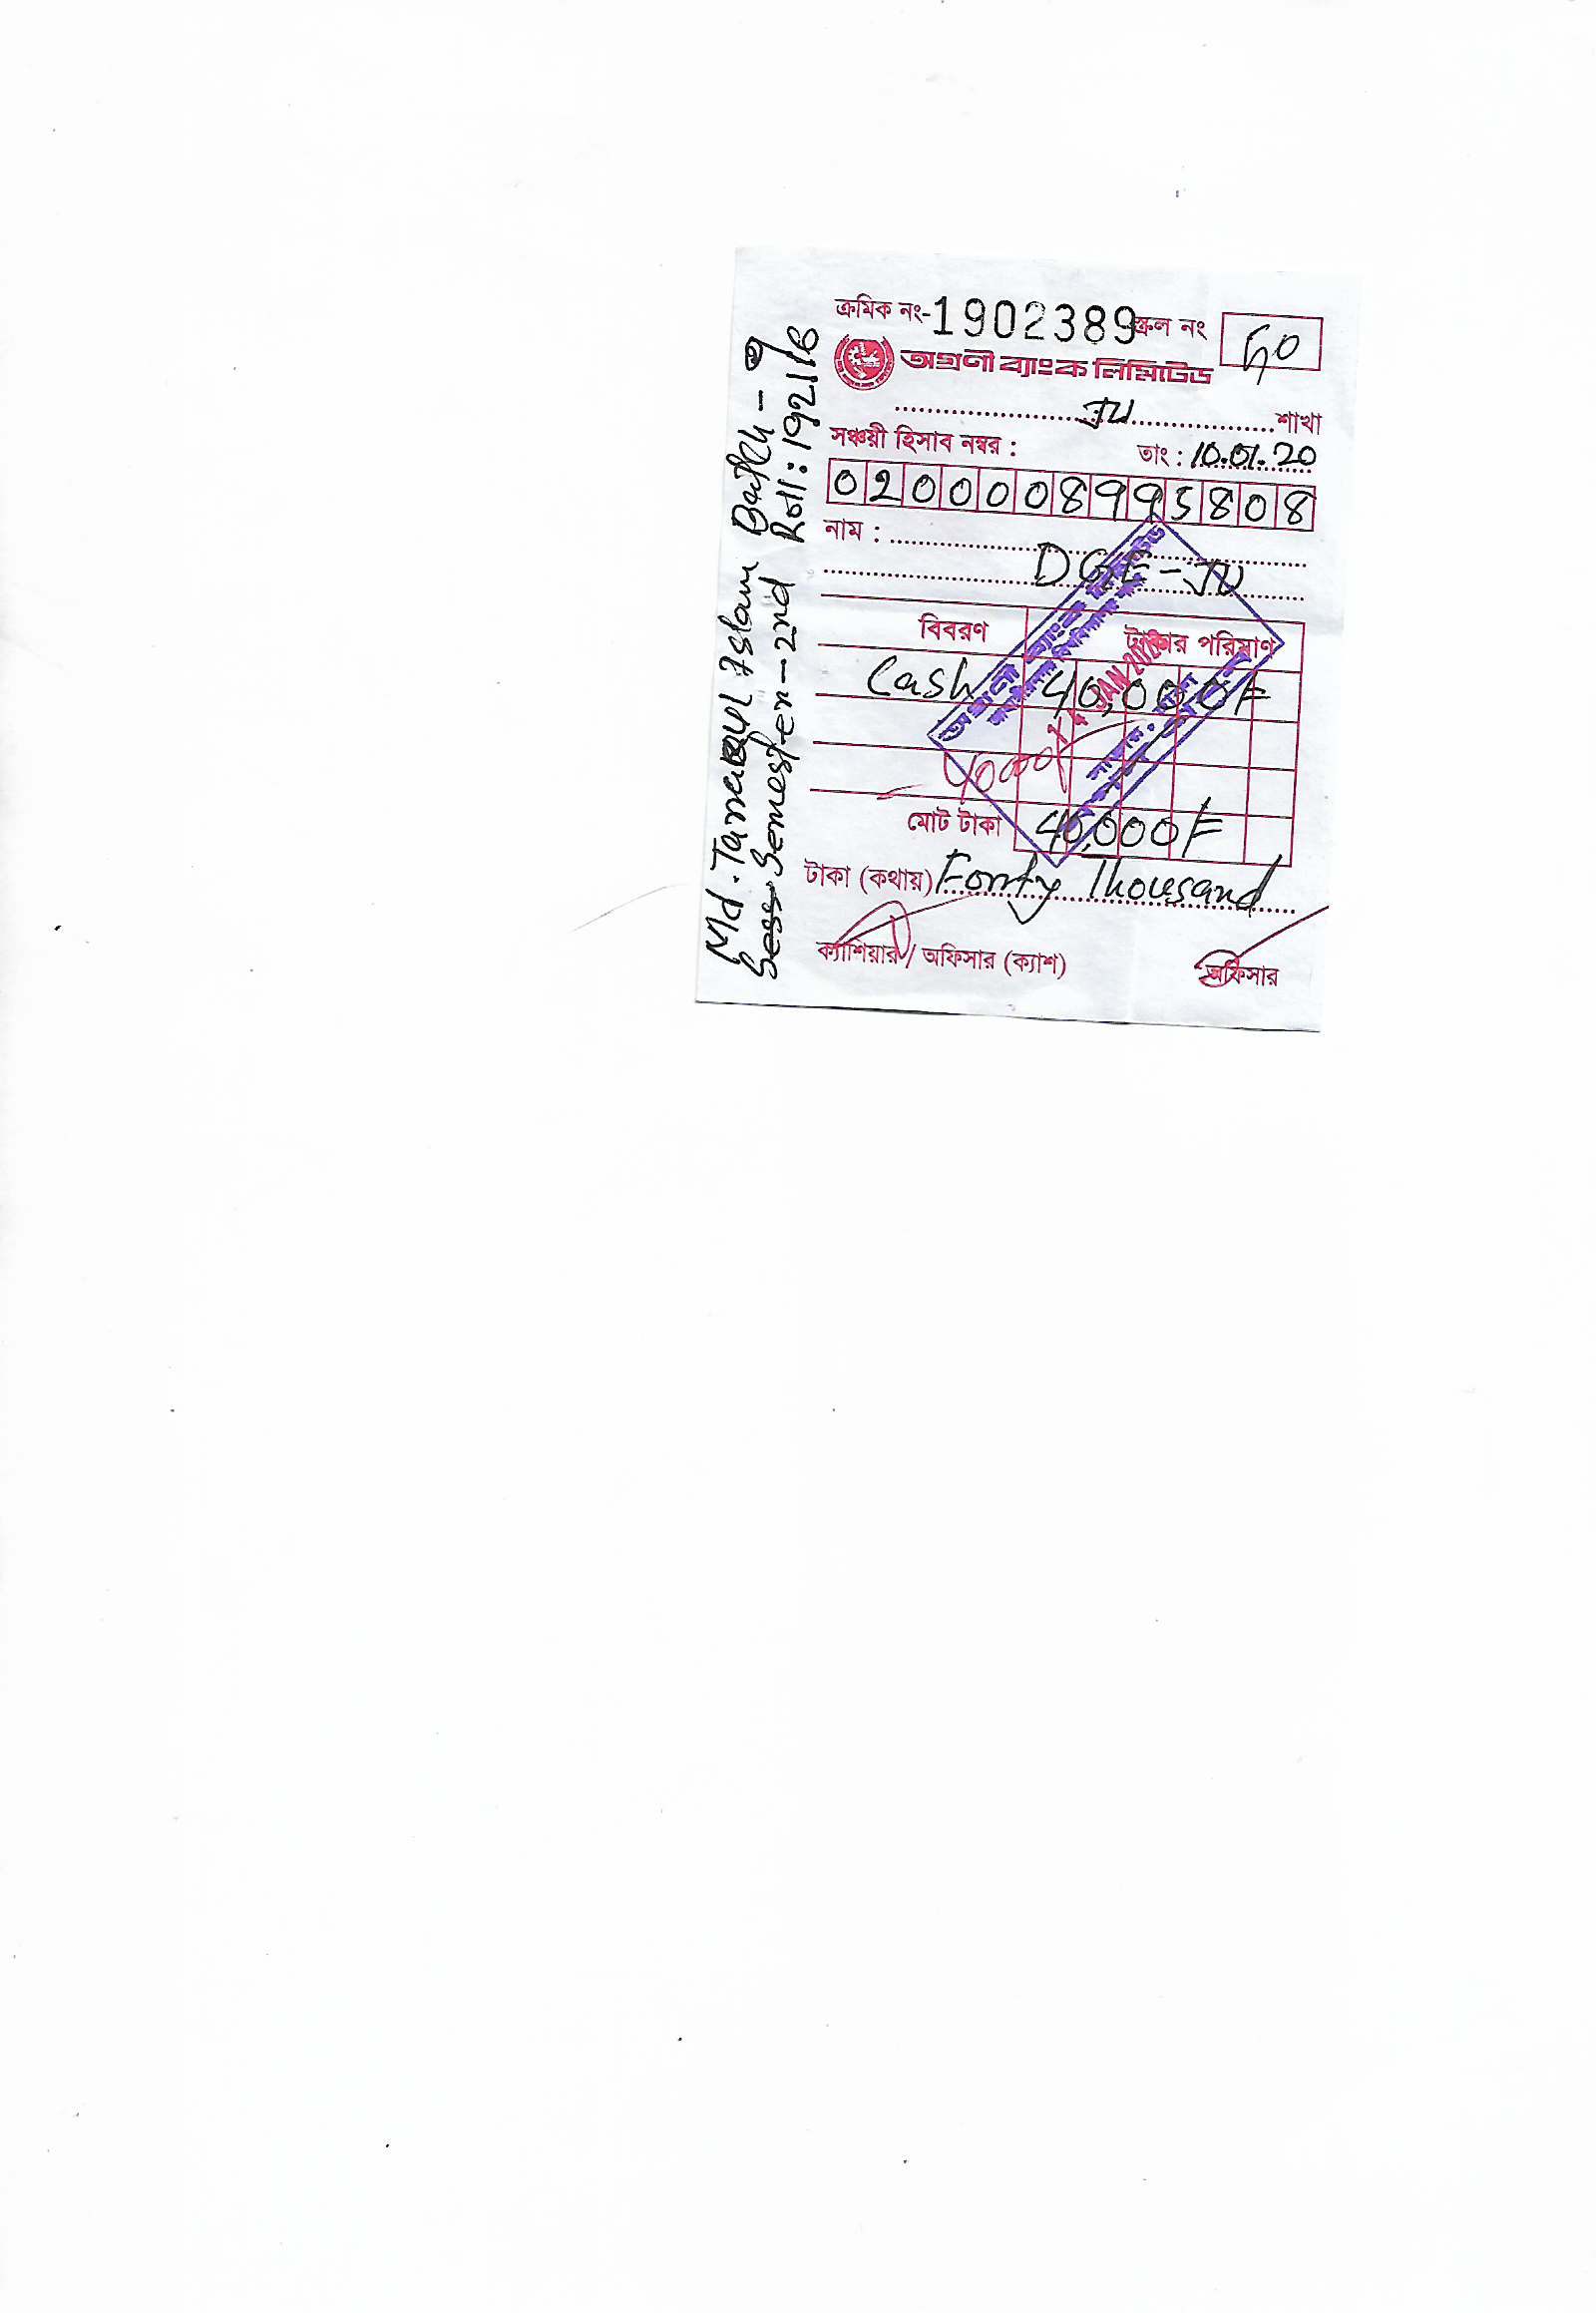 ক্রমিক নং-1902389 স্ক্রল নং 60
অগ্রণী ব্যাংক লিমিটেড
JU শাখা
সঞ্চয়ী হিসাব নম্বর : তাং : 10.01.20
0200008995808
নাম :
DGE-JU
বিবরণ টাকার পরিমাণ
Cash 40,000/=
40000/
মোট টাকা 40,000/=
টাকা (কথায়) Forty Thousand
ক্যাশিয়ার / অফিসার (ক্যাশ) অফিসার
অগ্রণী ব্যাংক লিমিটেড
JAN 2020
Md. Islam Batch - 9
Semester-2nd Roll: 192116